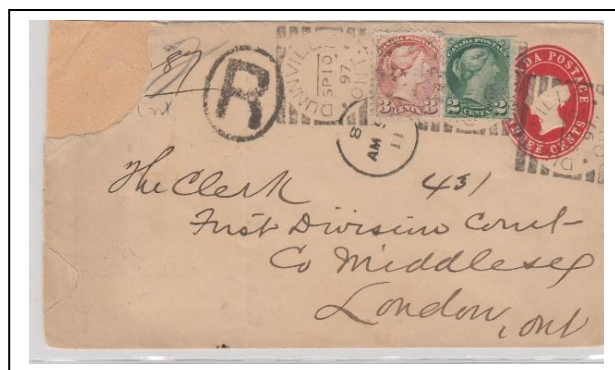 87
R
DUNNVILLE
SP 10
97
ONT.
CANADA POSTAGE
3 CENTS 3
CANADA POSTAGE
2 CENTS 2
DA POSTAGE
THREE CENTS
8
AM
11
The Clerk 431
First Division Court
Co Middlesex
London, Ont